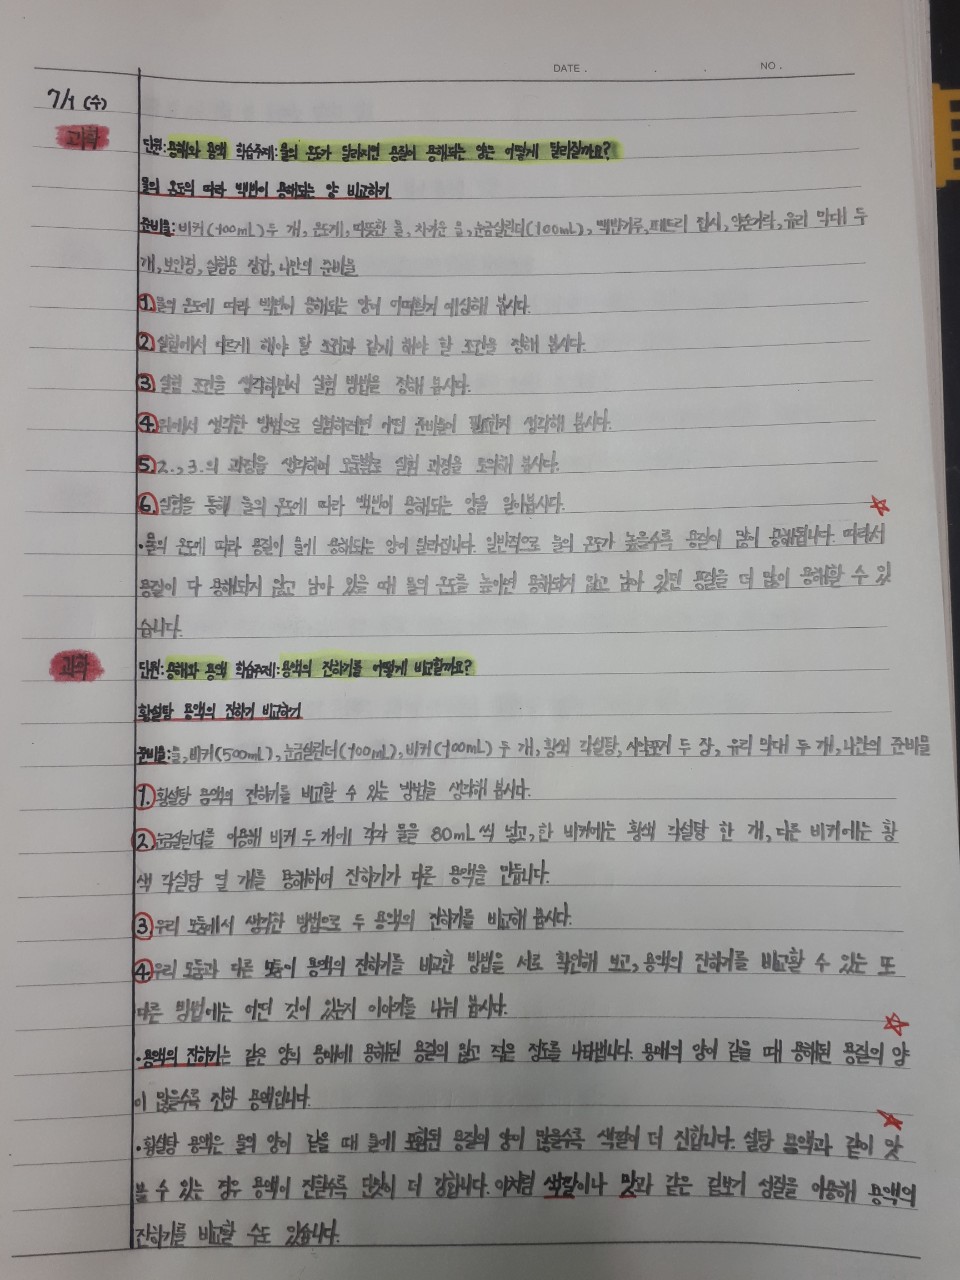 DATE . . . NO .
7/1 (수)
과학
단원: 용해와 용액 학습주제: 물의 온도가 달라지면 용질이 용해되는 양은 어떻게 달라질까요?
물의 온도의 따라 백반이 용해되는 양 비교하기
준비물: 비커(100mL) 두 개, 온도계, 따뜻한 물, 차가운 물, 눈금실린더(100mL), 백반가루, 페트리 접시, 약숟가락, 유리 막대 두
개, 보안경, 실험용 장갑, 나만의 준비물
1. 물의 온도에 따라 백반이 용해되는 양이 어떠할지 예상해 봅시다.
2 실험에서 다르게 해야 할 조건과 같게 해야 할 조건을 정해 봅시다.
3 실험 조건을 생각하면서 실험 방법을 정해 봅시다.
4. 위에서 생각한 방법으로 실험하려면 어떤 준비물이 필요한지 생각해 봅시다.
5. 2., 3.의 과정을 생각하며 모둠별로 실험 과정을 토의해 봅시다.
6. 실험을 통해 물의 온도에 따라 백반이 용해되는 양을 알아봅시다.
·물의 온도에 따라 용질이 물에 용해되는 양이 달라집니다. 일반적으로 물의 온도가 높을수록 용질이 많이 용해됩니다. 따라서
용질이 다 용해되지 않고 남아 있을 때 물의 온도를 높이면 용해되지 않고 남아 있던 용질을 더 많이 용해할 수 있
습니다.
과학
단원: 용해와 용액 학습주제: 용액의 진하기를 어떻게 비교할까요?
황설탕 용액의 진하기 비교하기
준비물: 물, 비커(500mL), 눈금실린더(100mL), 비커(100mL) 두 개, 황색 각설탕, 시약포지 두 장, 유리 막대 두 개, 나만의 준비물
1. 황설탕 용액의 진하기를 비교할 수 있는 방법을 생각해 봅시다.
2 눈금실린더를 이용해 비커 두 개에 각각 물을 80mL씩 넣고, 한 비커에는 황색 각설탕 한 개, 다른 비커에는 황
색 각설탕 열 개를 용해하여 진하기가 다른 용액을 만듭니다.
3 우리 모둠에서 생각한 방법으로 두 용액의 진하기를 비교해 봅시다.
4 우리 모둠과 다른 모둠이 용액의 진하기를 비교한 방법을 서로 확인해 보고, 용액의 진하기를 비교할 수 있는 또
다른 방법에는 어떤 것이 있는지 이야기를 나눠 봅시다.
·용액의 진하기는 같은 양의 용매에 용해된 용질의 많고 적은 정도를 나타냅니다. 용매의 양이 같을 때 용해된 용질의 양
이 많을수록 진한 용액입니다.
·황설탕 용액은 물의 양이 같을 때 물에 포함된 용질의 양이 많을수록 색깔이 더 진합니다. 설탕 용액과 같이 맛
볼 수 있는 경우 용액이 진할수록 단맛이 더 강합니다. 이처럼 색깔이나 맛과 같은 겉보기 성질을 이용해 용액의
진하기를 비교할 수도 있습니다.